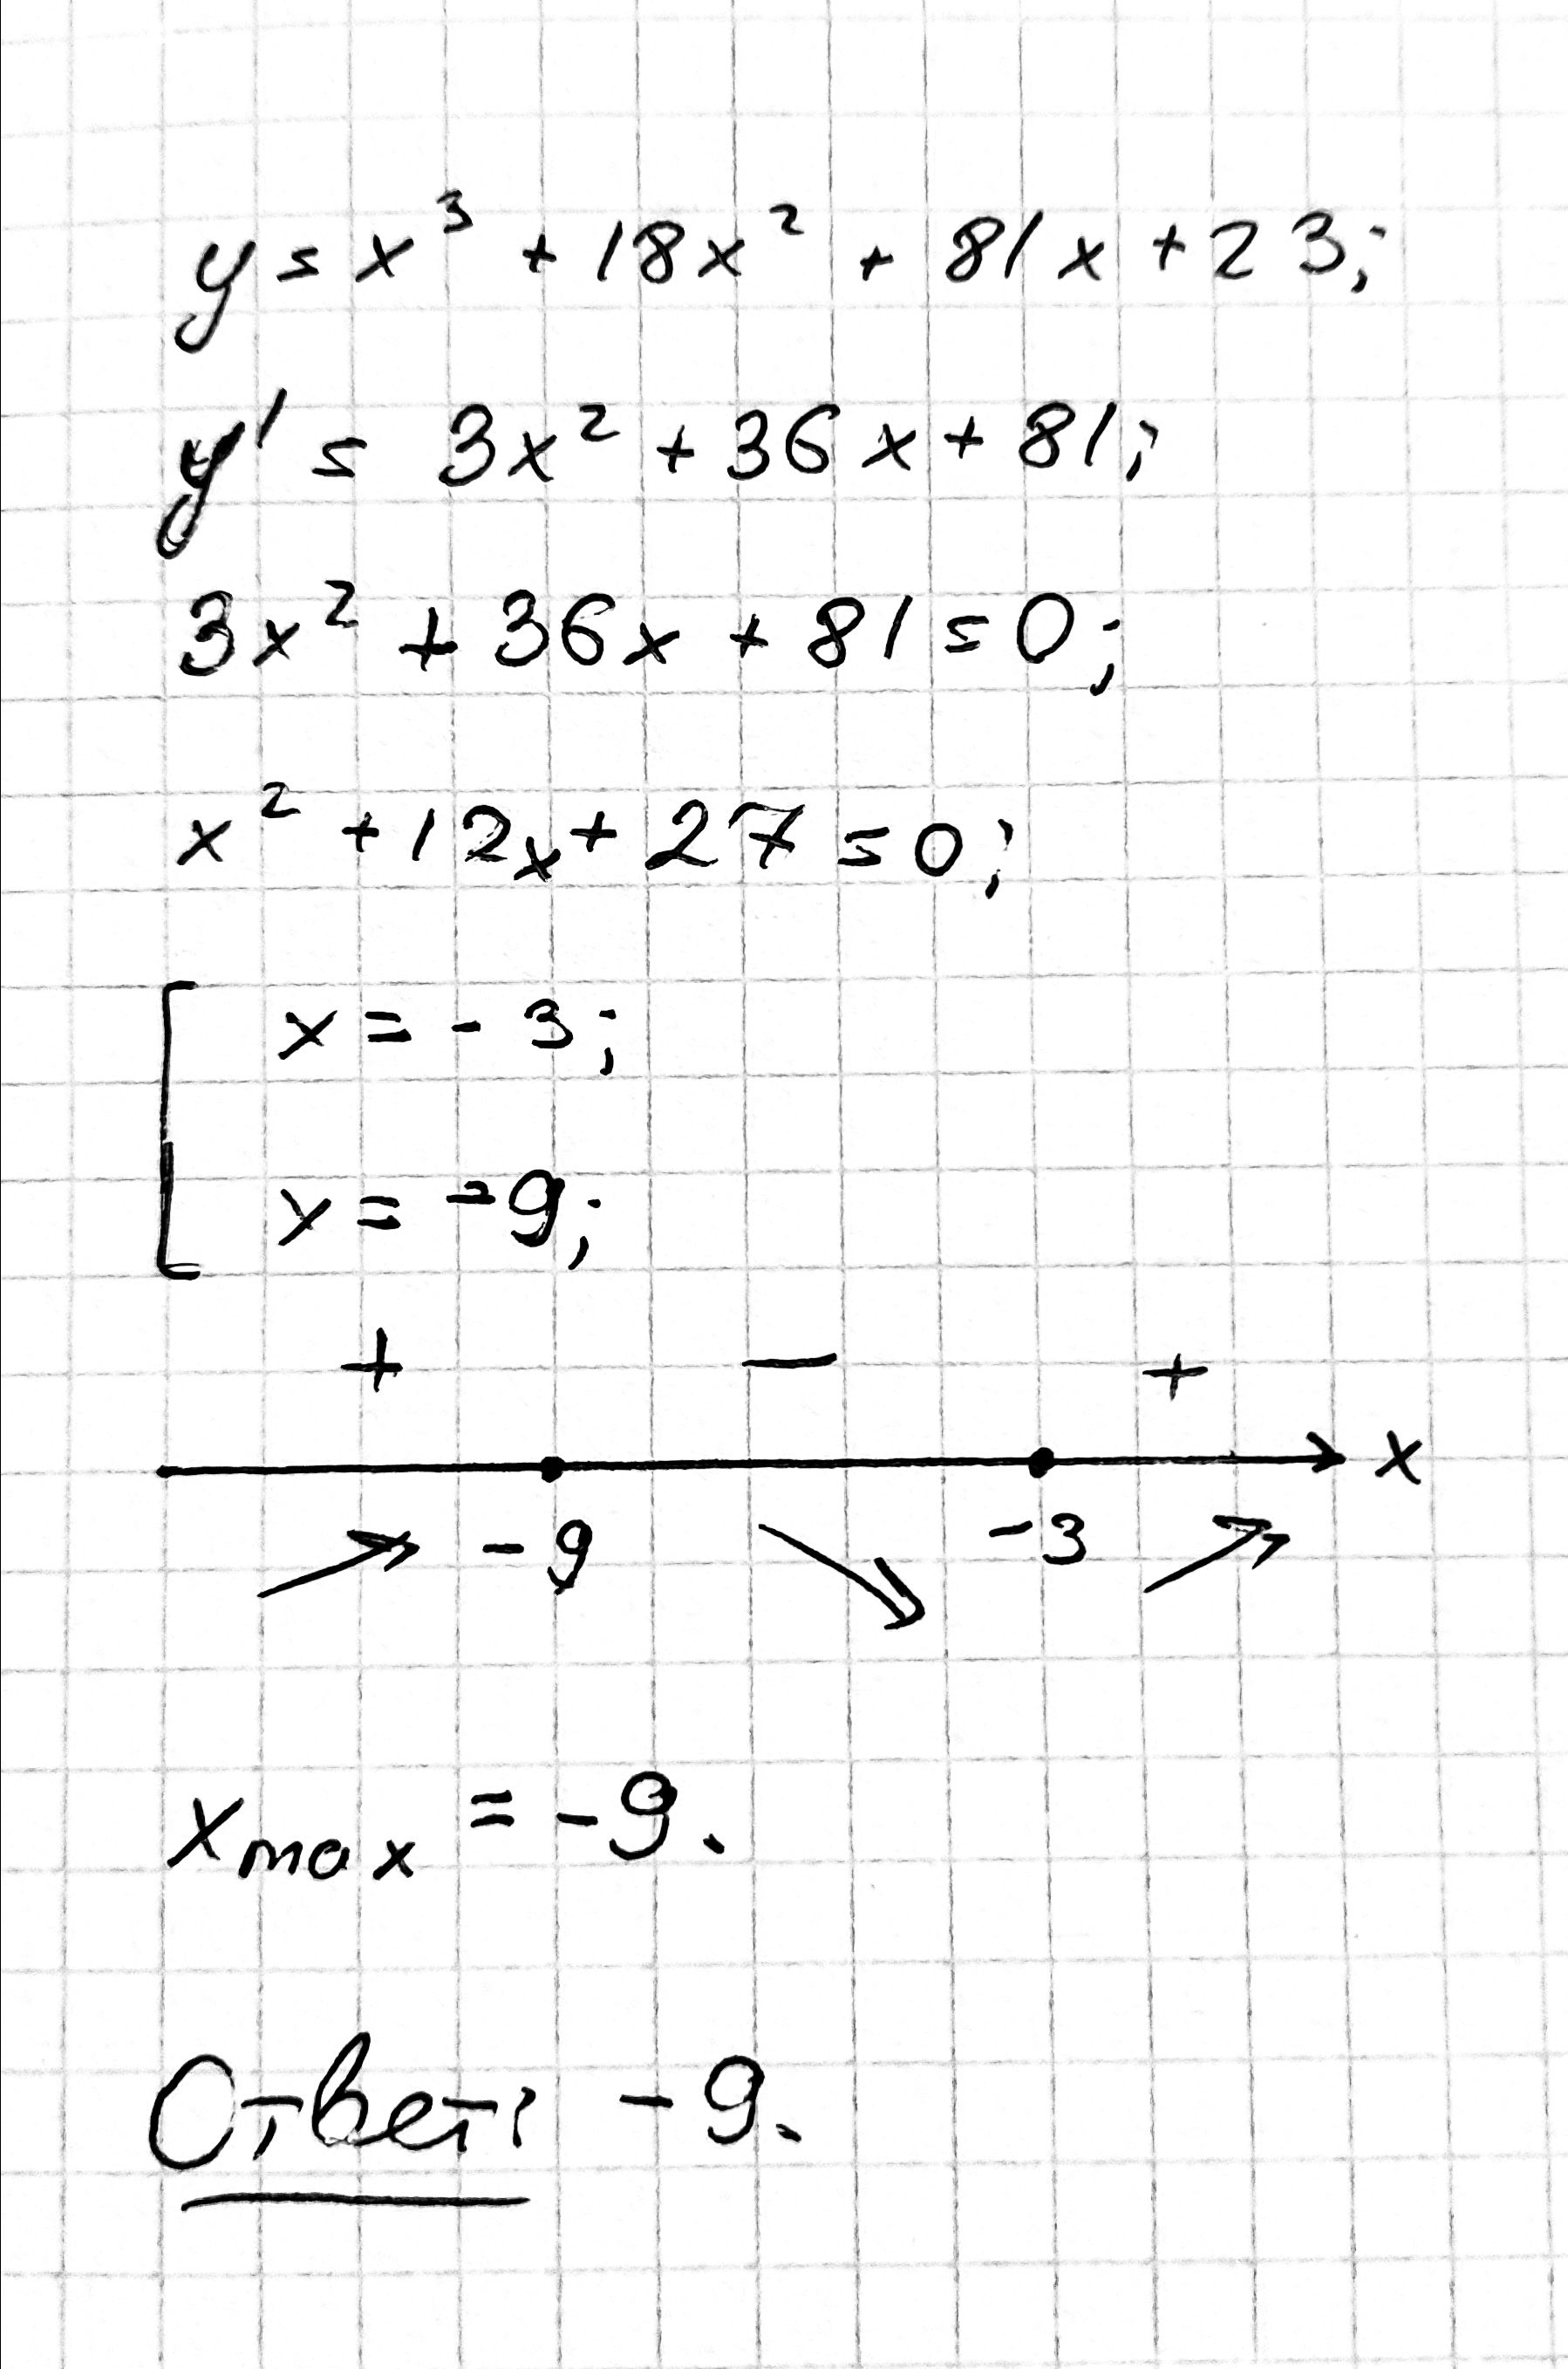 y = x³ + 18x² + 81x + 23;
y' = 3x² + 36x + 81;
3x² + 36x + 81 = 0;
x² + 12x + 27 = 0;
x = -3;
x = -9;
+ − +
x
-9 -3
xmax = -9.
Ответ: -9.